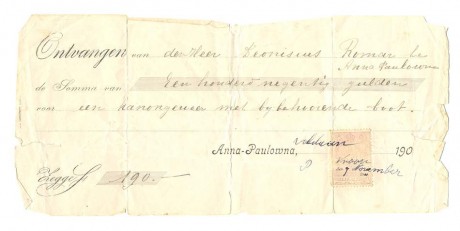 Ontvangen van den Heer Dionisius Romar te
Anna Paulowna
de Somma van Een honderd negentig gulden
voor een kanongeweer met bijbehoorende boot.
Anna-Paulowna, 190
9 November
Zegge f 190.-